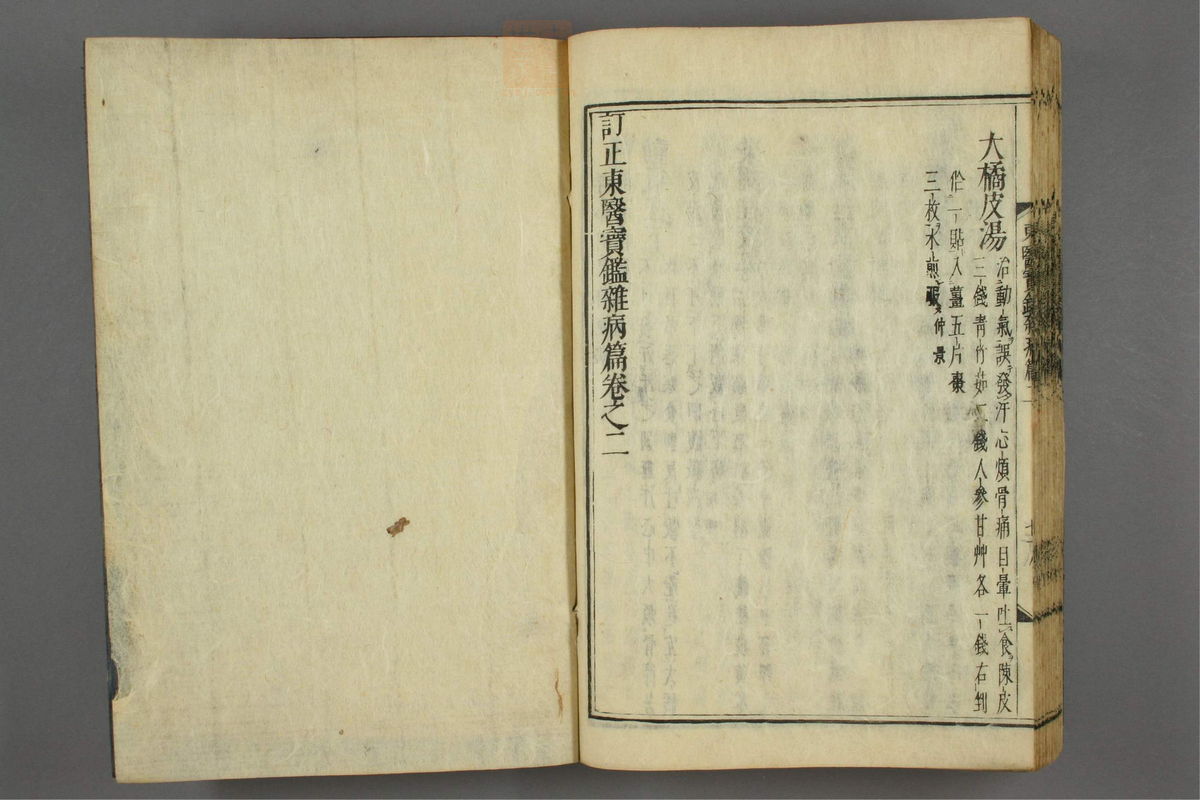 大橘皮湯治動氣誤發汗心煩骨痛目暈吐食陳皮
三錢靑竹茹二錢人參甘艸各一錢右剉
作一貼入薑五片棗
三枚水煎服仲景
訂正東醫寶鑑雜病篇卷之二